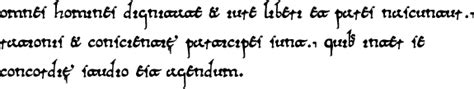 omnes homines dignitate & iure liberi et pares nascuntur.,
rationis & conscientię participes sunt., quibˢ inter se
concordię studio est agendum.